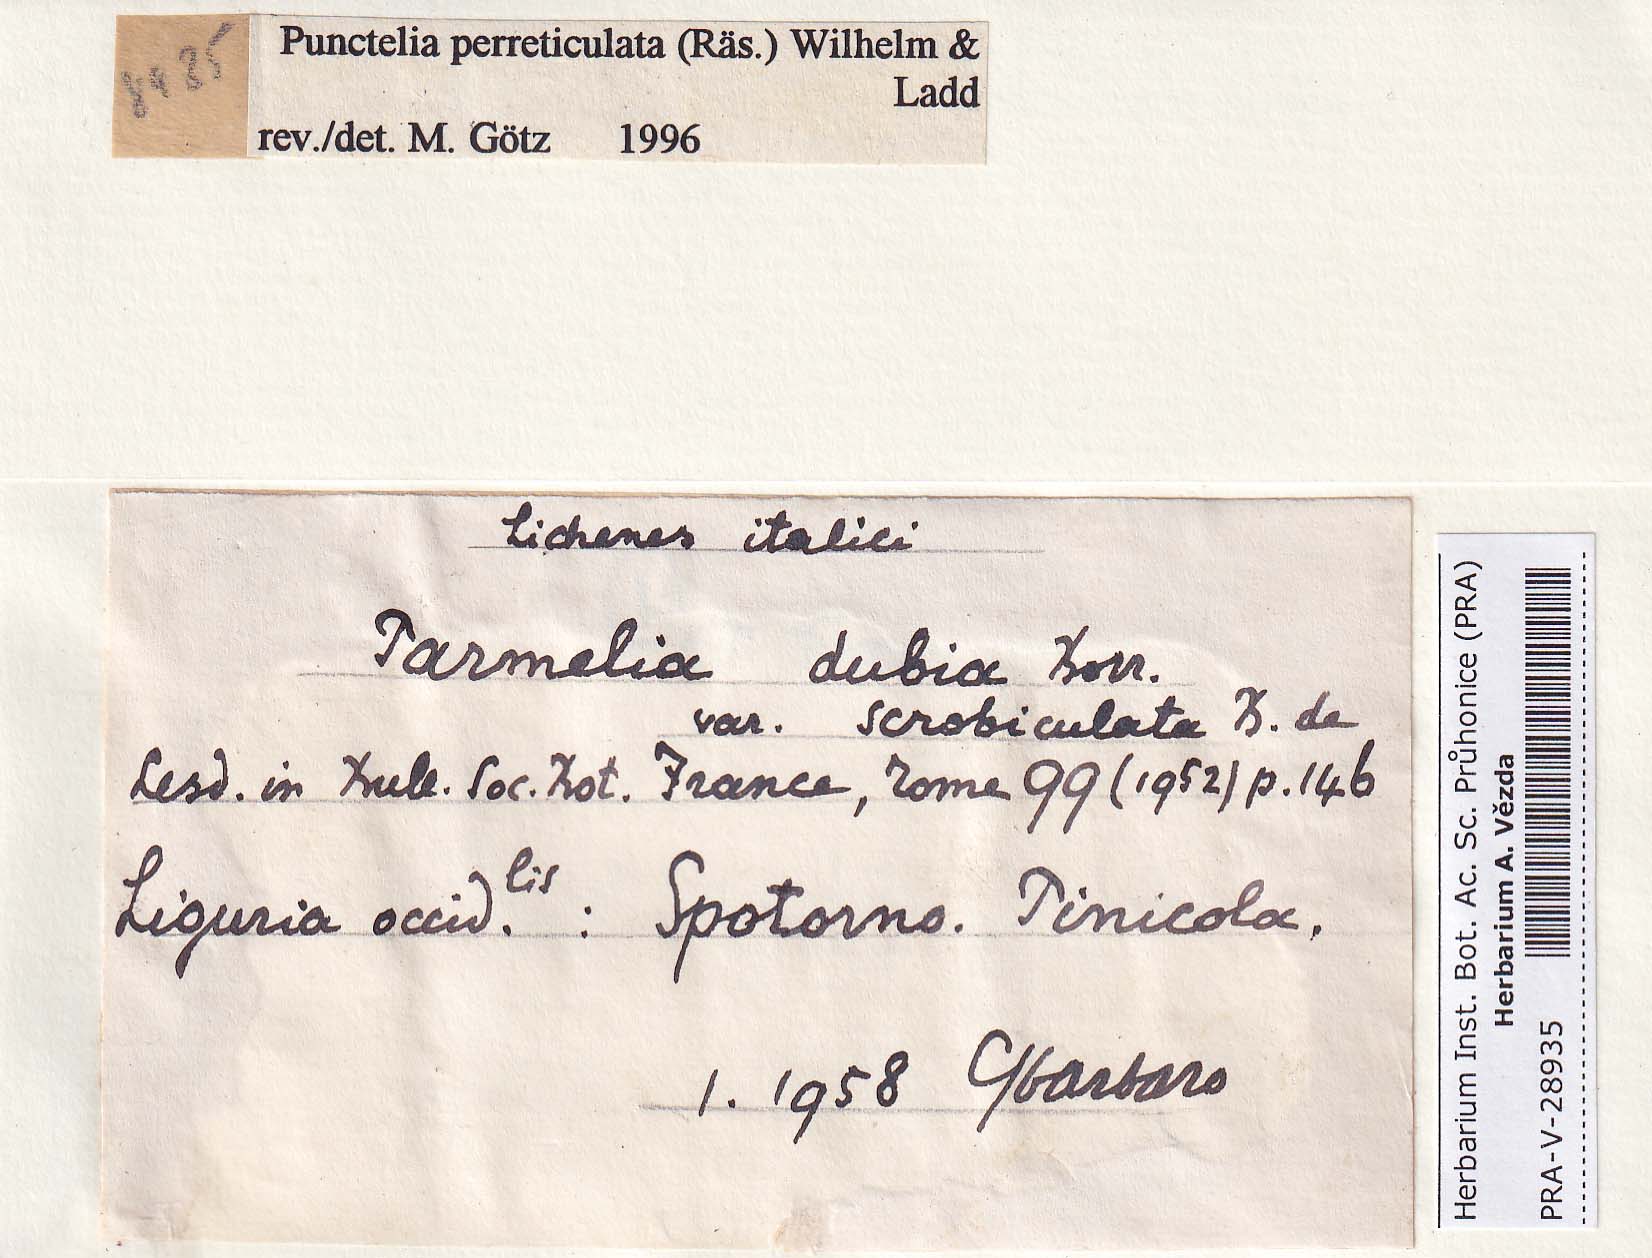 Punctelia perreticulata (Räs.) Wilhelm &
Ladd
rev./det. M. Götz 1996
Lichenes italici
Parmelia dubia Borr.
var. scrobiculata B. de
Lesd. in Bull. Soc. Bot. France, Tome 99 (1952) p. 146
Liguria occid.lis : Spotorno. Pinicola.
1. 1958 Sbarbaro
Herbarium Inst. Bot. Ac. Sc. Průhonice (PRA)
Herbarium A. Vězda
PRA-V-28935